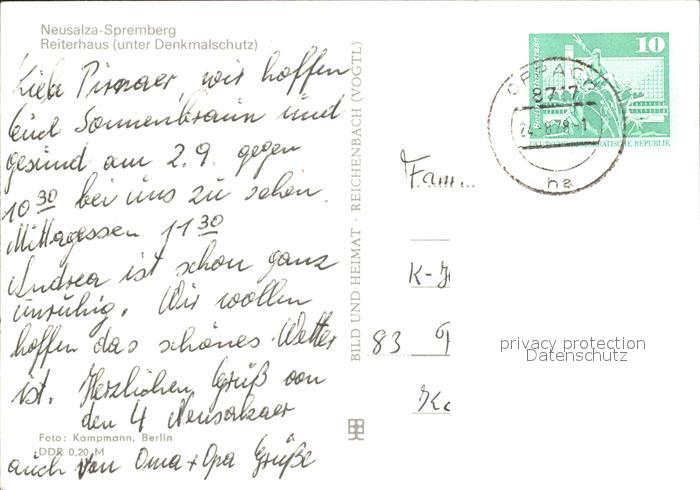 Neusalza-Spremberg
Reiterhaus (unter Denkmalschutz)
Liebe Pirnaer, wir hoffen
Euch Sonnenbraun und
gesund am 2.9. gegen
10 30 bei uns zu sehen.
Mittagessen 11 30
Andrea ist schon ganz
unruhig. Wir wollen
hoffen das schönes Wetter
ist. Herzlichen Grüß von
den 4 Neusalzaer
Foto: Kampmann, Berlin
DDR 0,20 M
auch von Oma + Opa Grüße
BILD UND HEIMAT · REICHENBACH (VOGTL)
10
DEUTSCHE DEMOKRATISCHE REPUBLIK
OPPACH
8717
24.-8.78-1
ha
Fam.
K-
83
privacy protection
Datenschutz